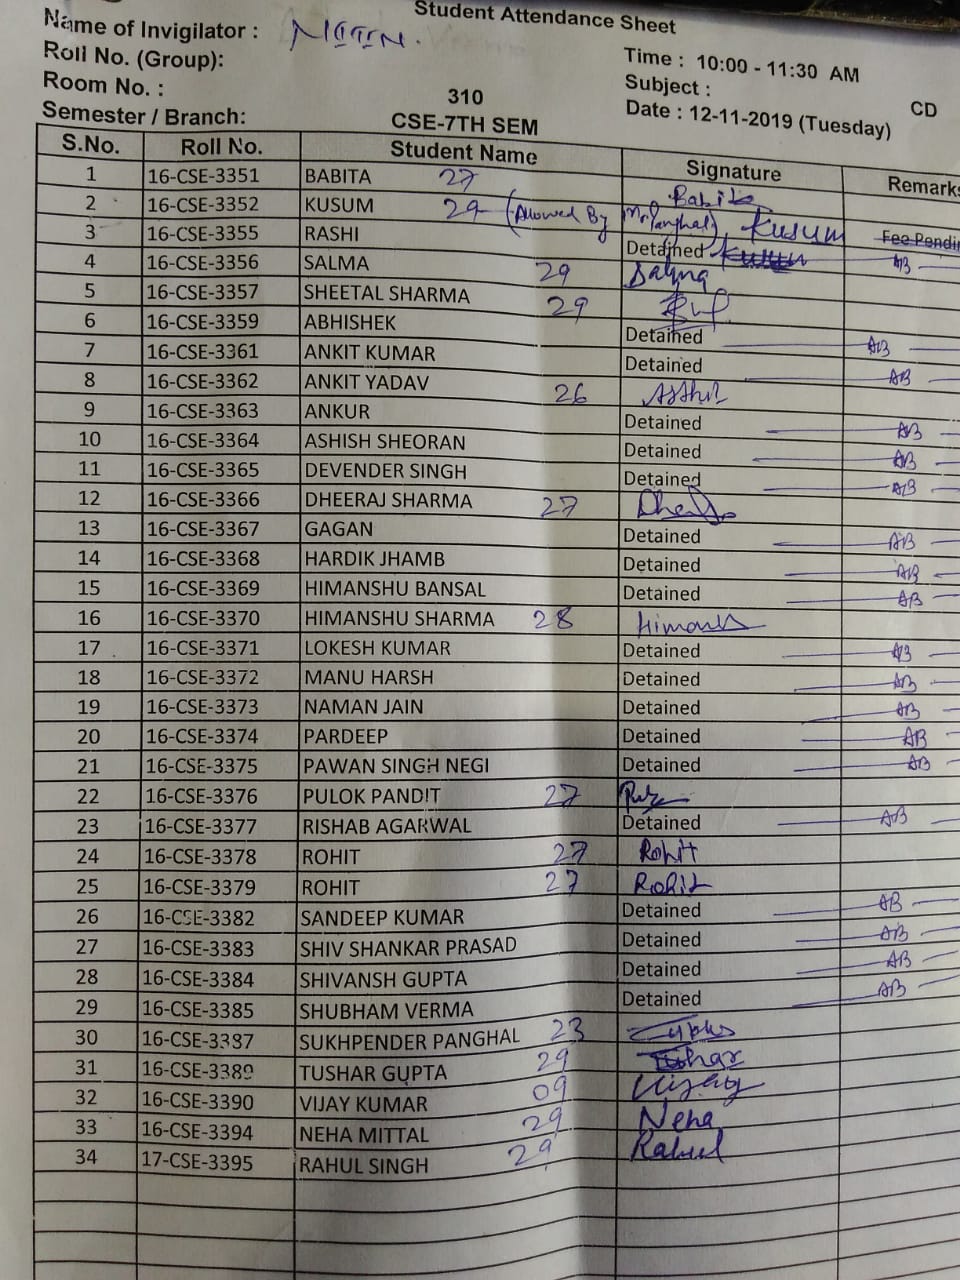 Student Attendance Sheet
Name of Invigilator : NITIN.
Time : 10:00 - 11:30 AM
Roll No. (Group):
Subject : CD
Room No. : 310
Date : 12-11-2019 (Tuesday)
Semester / Branch: CSE-7TH SEM
S.No. Roll No. Student Name Signature Remarks
1 16-CSE-3351 BABITA 27 Babita
2 16-CSE-3352 KUSUM 29 (Allowed By Mr. Panghal) Kusum Fee Pendin
3 16-CSE-3355 RASHI Detained AB
4 16-CSE-3356 SALMA 29 Salma
5 16-CSE-3357 SHEETAL SHARMA 29
6 16-CSE-3359 ABHISHEK Detained AB
7 16-CSE-3361 ANKIT KUMAR Detained AB
8 16-CSE-3362 ANKIT YADAV 26
9 16-CSE-3363 ANKUR Detained AB
10 16-CSE-3364 ASHISH SHEORAN Detained AB
11 16-CSE-3365 DEVENDER SINGH Detained AB
12 16-CSE-3366 DHEERAJ SHARMA 27
13 16-CSE-3367 GAGAN Detained AB
14 16-CSE-3368 HARDIK JHAMB Detained AB
15 16-CSE-3369 HIMANSHU BANSAL Detained AB
16 16-CSE-3370 HIMANSHU SHARMA 28
17 16-CSE-3371 LOKESH KUMAR Detained AB
18 16-CSE-3372 MANU HARSH Detained AB
19 16-CSE-3373 NAMAN JAIN Detained AB
20 16-CSE-3374 PARDEEP Detained AB
21 16-CSE-3375 PAWAN SINGH NEGI Detained AB
22 16-CSE-3376 PULOK PANDIT 27
23 16-CSE-3377 RISHAB AGARWAL Detained AB
24 16-CSE-3378 ROHIT 27 Rohit
25 16-CSE-3379 ROHIT 27 Rohit
26 16-CSE-3382 SANDEEP KUMAR Detained AB
27 16-CSE-3383 SHIV SHANKAR PRASAD Detained AB
28 16-CSE-3384 SHIVANSH GUPTA Detained AB
29 16-CSE-3385 SHUBHAM VERMA Detained AB
30 16-CSE-3387 SUKHPENDER PANGHAL 23
31 16-CSE-3389 TUSHAR GUPTA 29 Tushar
32 16-CSE-3390 VIJAY KUMAR 09 Vijay
33 16-CSE-3394 NEHA MITTAL 29 Neha
34 17-CSE-3395 RAHUL SINGH 29 Rahul